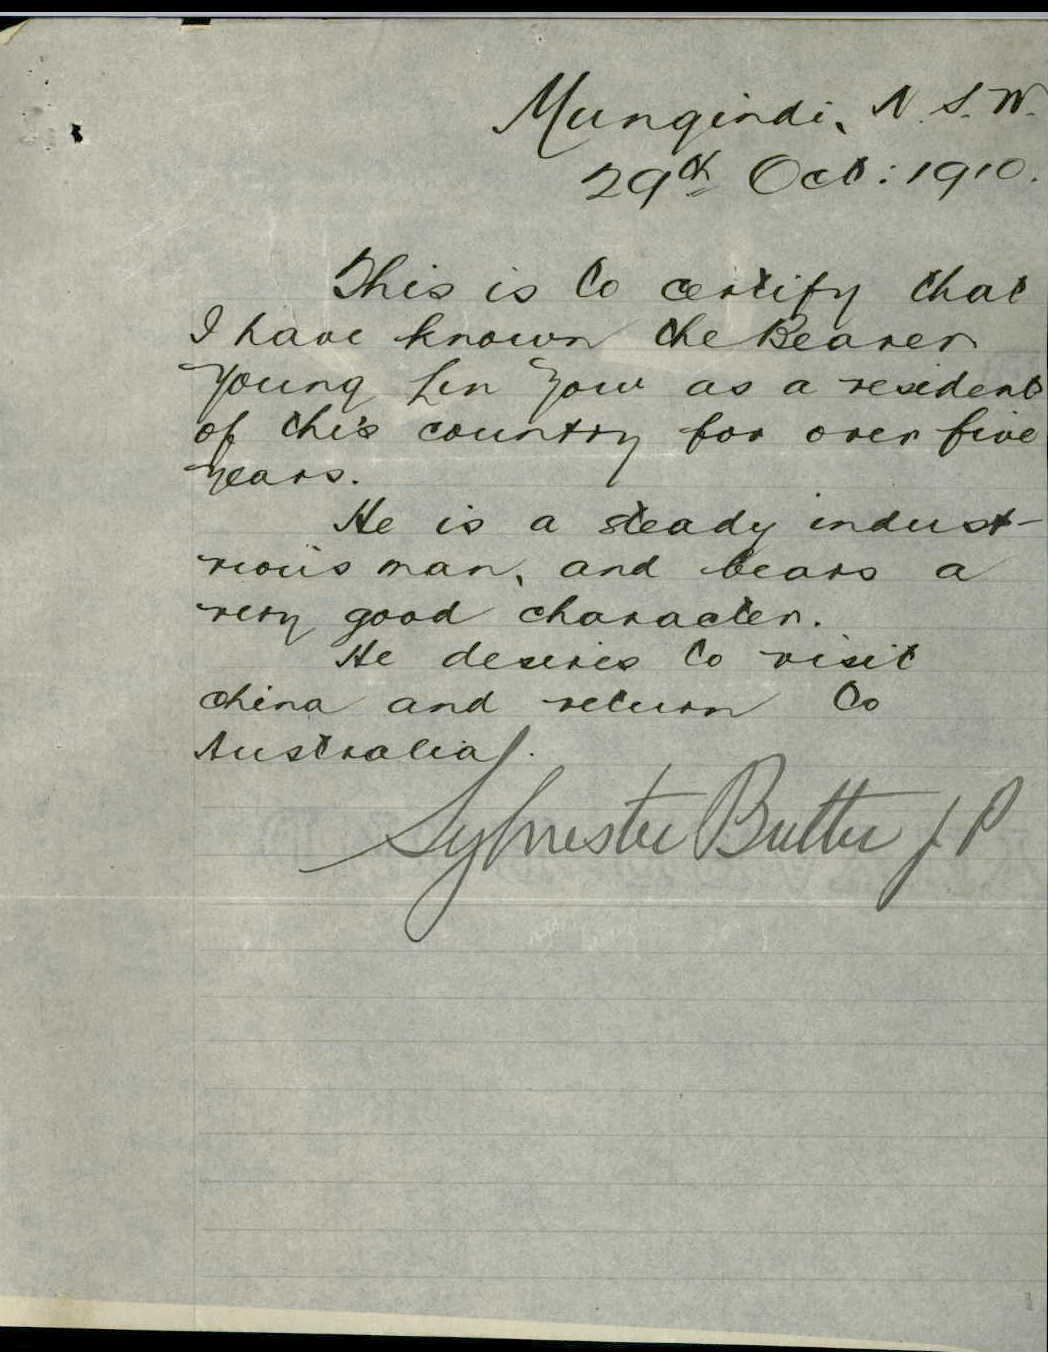 Mungindi, N.S.W.
29th Oct: 1910.
This is to certify that
I have known the Bearer
Young Lin Yow as a resident
of this country for over five
years.
He is a steady indust-
rious man, and bears a
very good character.
He desires to visit
China and return to
Australia.
Sylvester Butter J P